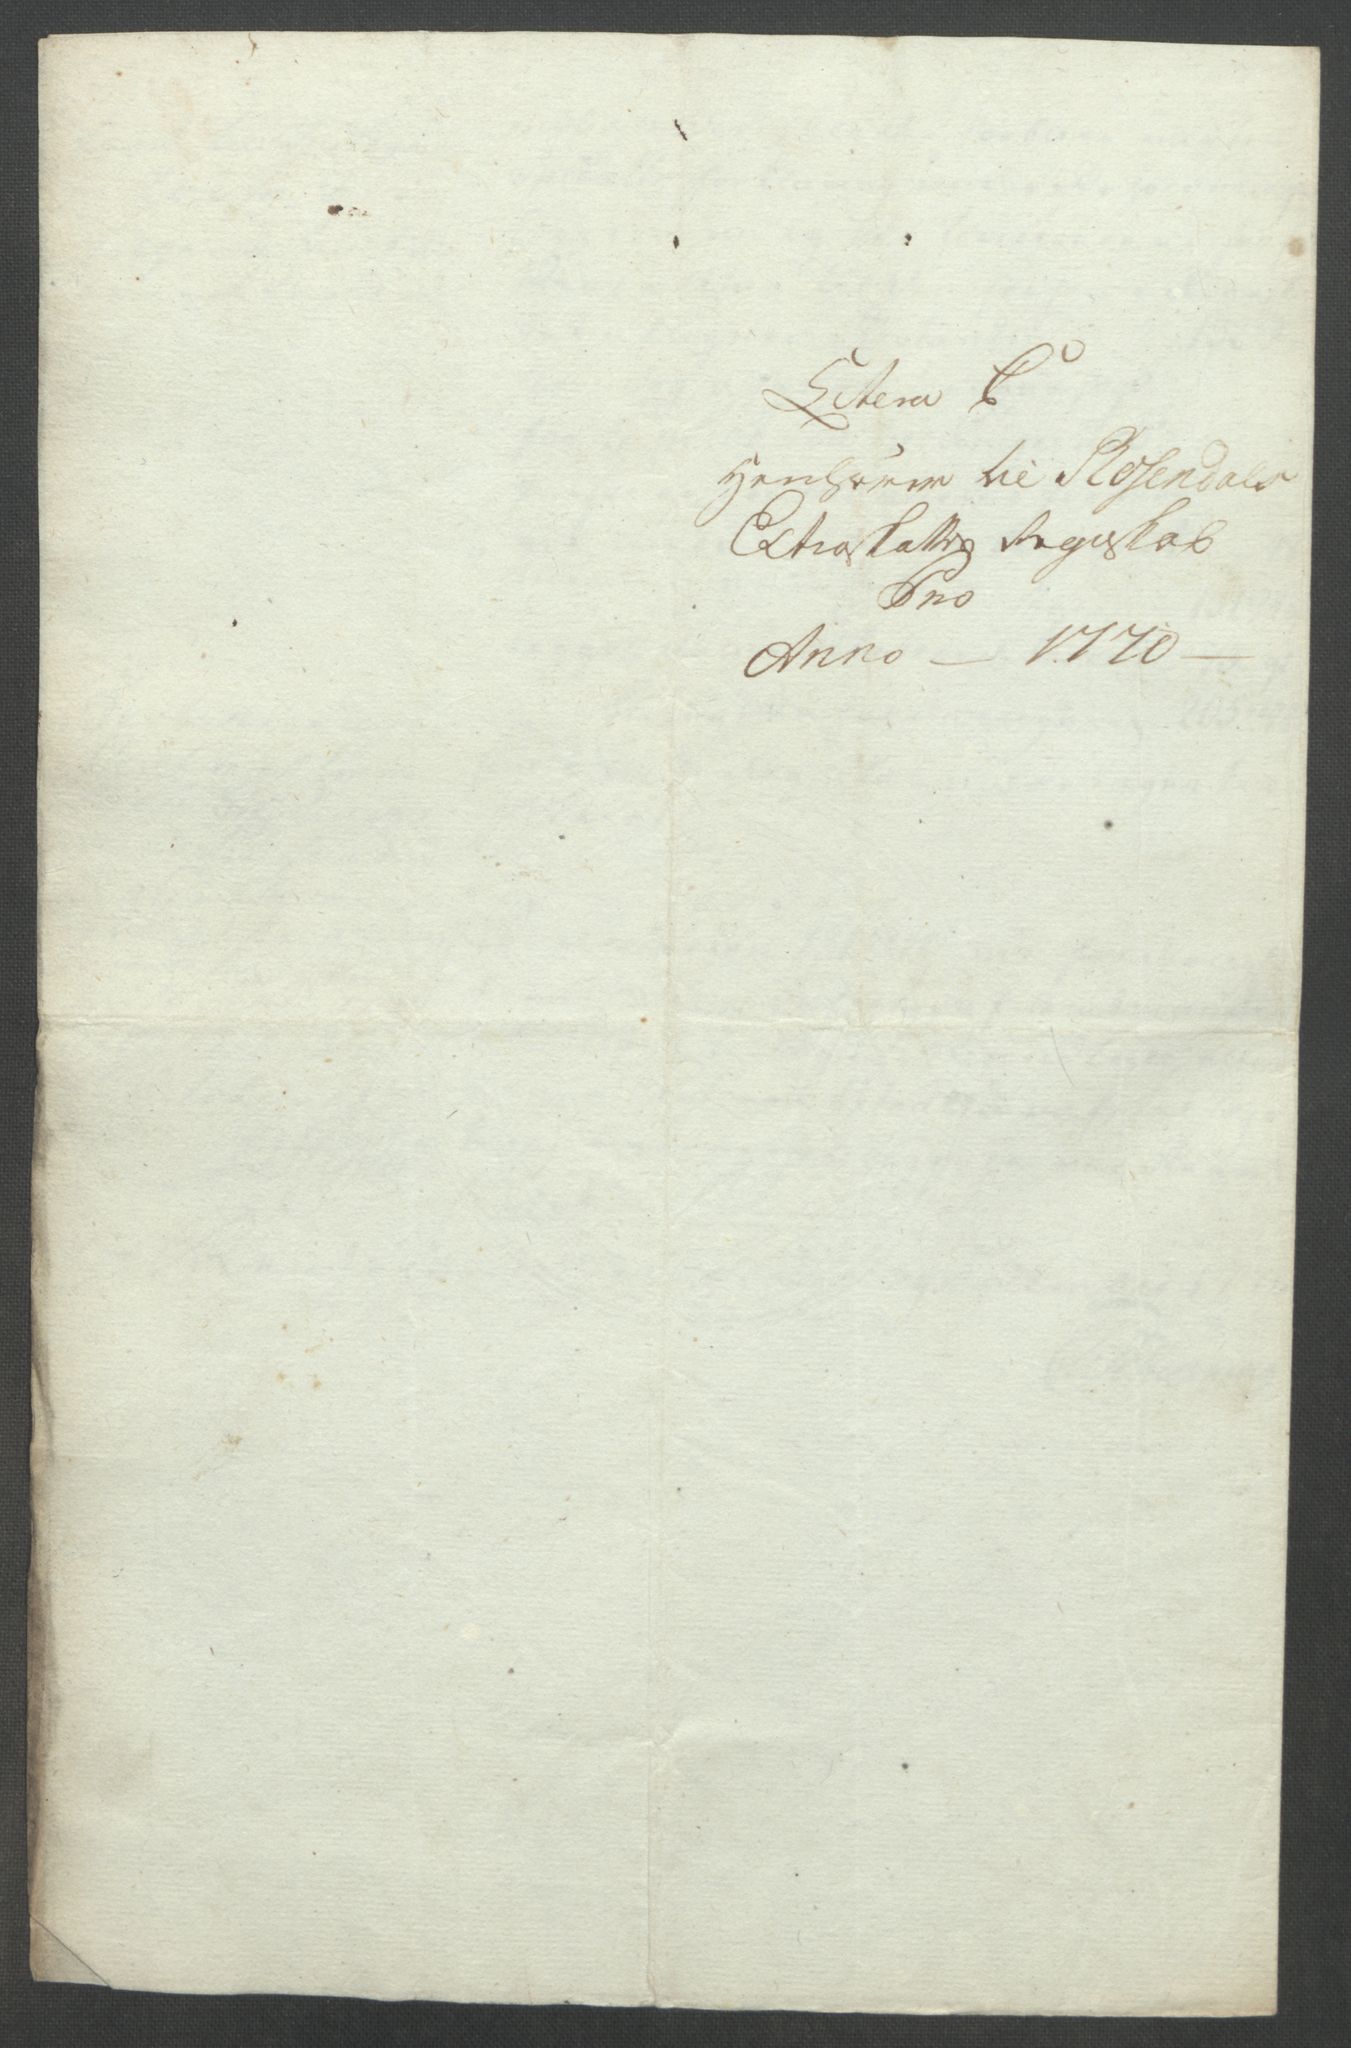 Litera C
Henhørende til Rosendals
Extraskattes Regnskab
Pro
Anno — 1770 —